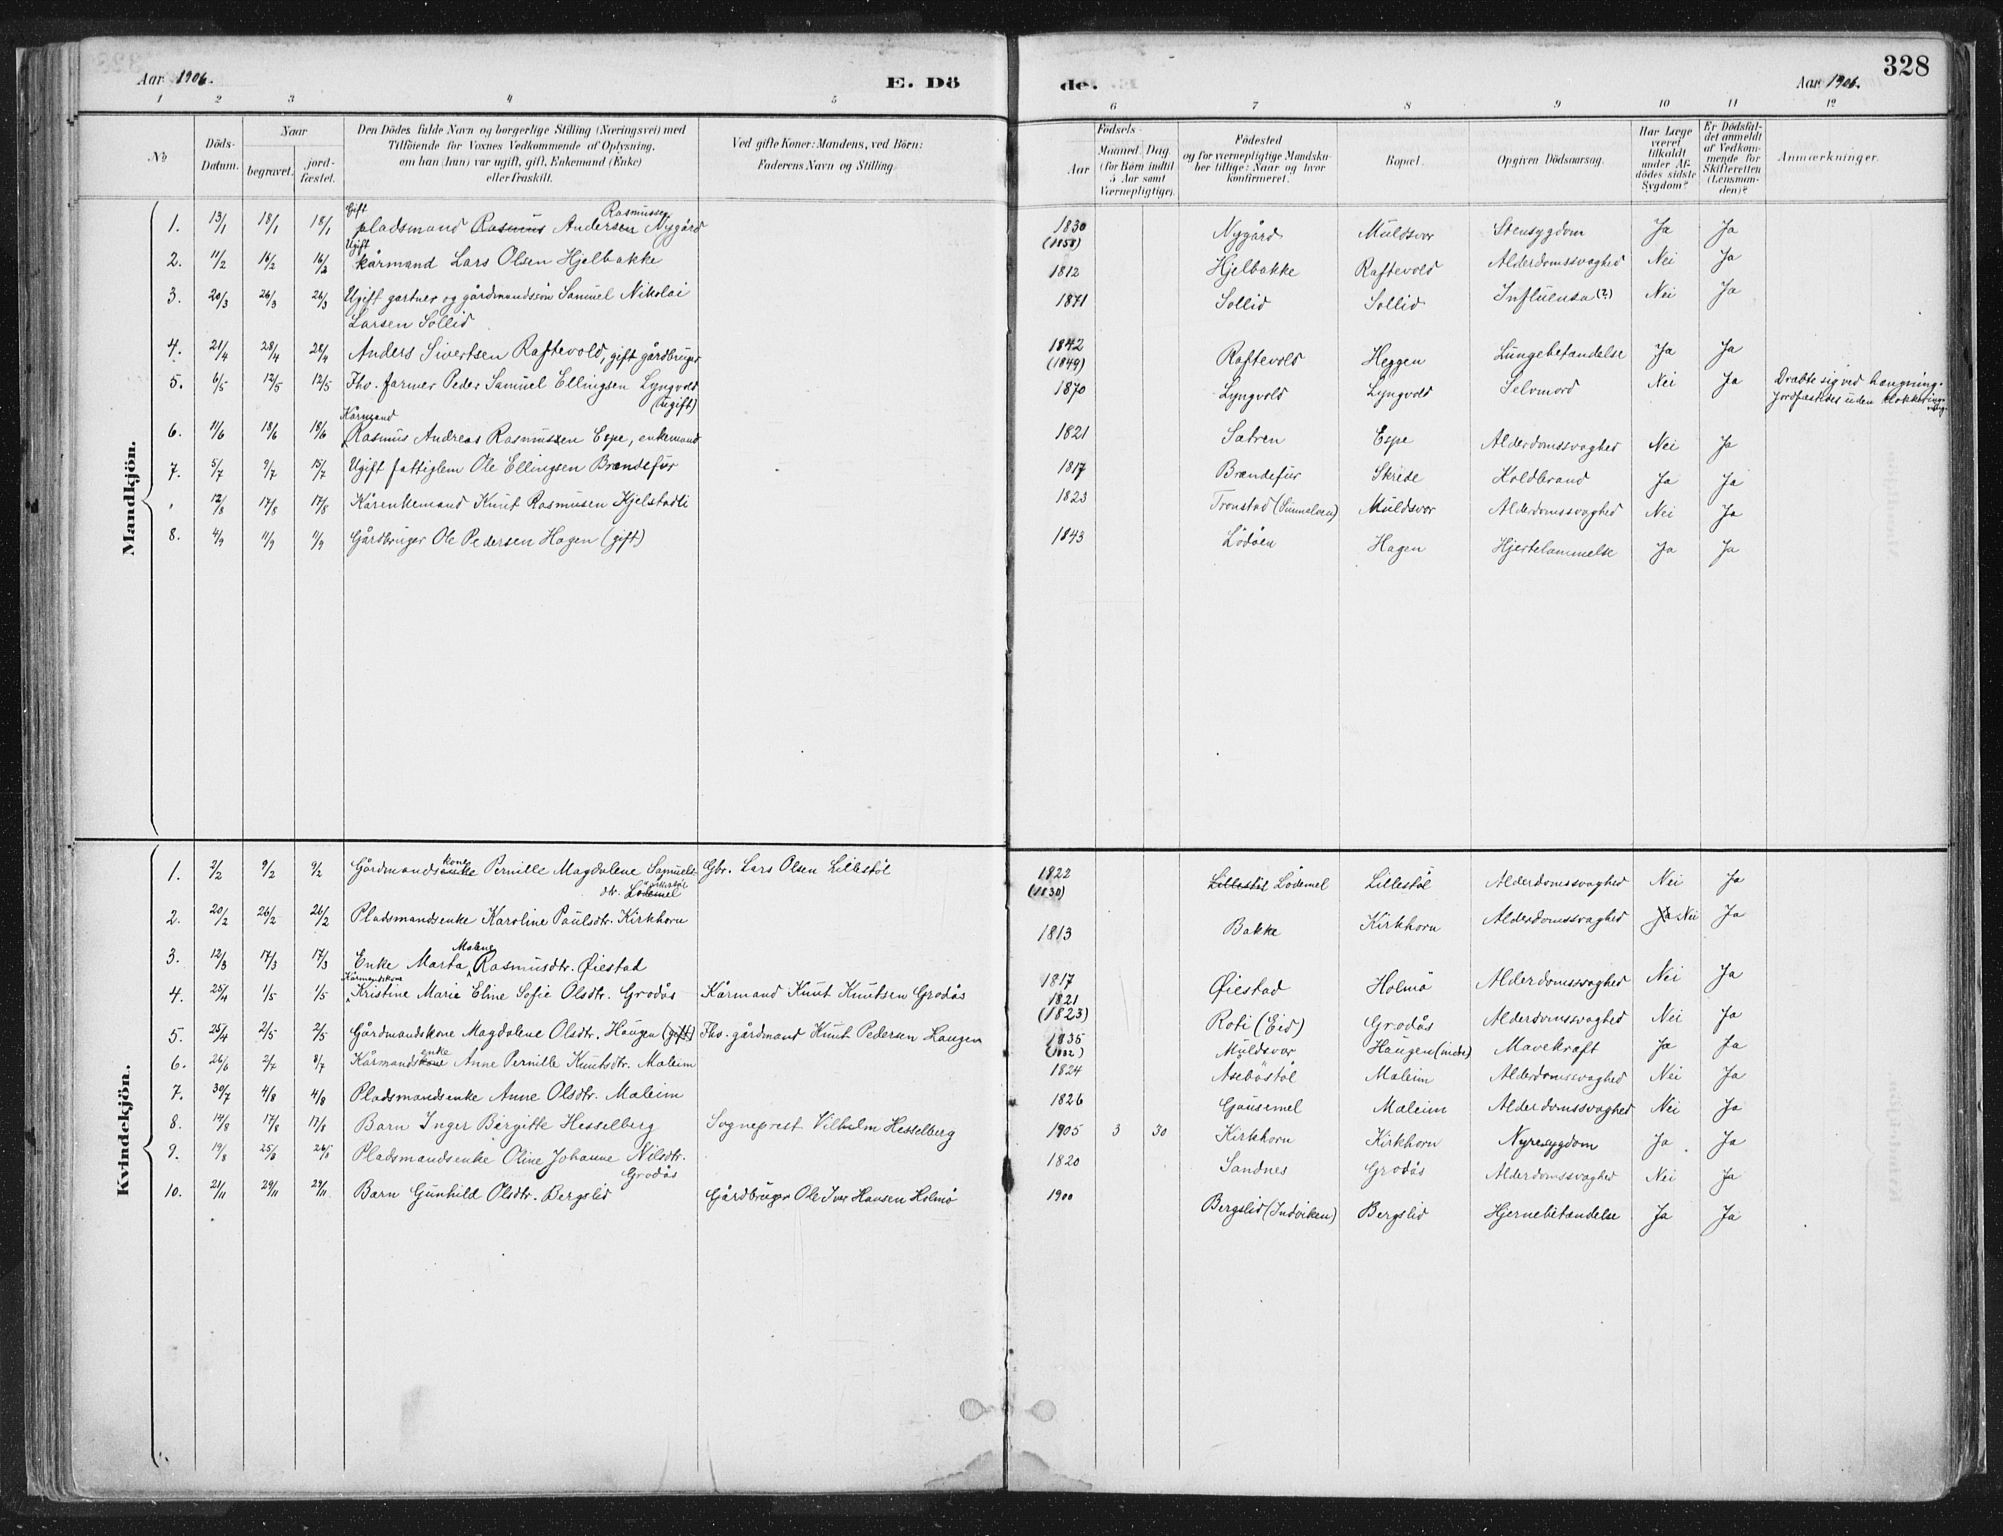 Aar 1906.
E. Dö
de.
Aar 1906.
328
1 2 3 4 5 6 7 8 9 10 11 12
№
Döds-Datum.
Naar
begravet.
jord-fæstet.
Den Dödes fulde Navn og borgerlige Stilling (Næringsvei) med
Tilföiende for Voxnes Vedkommende af Oplysning,
om han (hun) var ugift, gift, Enkemand (Enke)
eller fraskilt.
Ved gifte Koner: Mandens, ved Börn:
Faderens Navn og Stilling.
Födsels-
Aar
Maaned. Dag.
(for Börn indtil
5 Aar samt
Værnepligtige).
Födested
og for værnepligtige Mandska-
ber tillige: Naar og hvor
konfirmeret.
Bopæl.
Opgiven Dödsaarsag.
Har Læge
været
tilkaldt
under Af-
dödes sidste
Sygdom?
Er Dödsfal-
det anmeldt
af Vedkom-
mende for
Skifteretten
(Lensman-
den)?
Anmærkninger.
Mandkjön.
1. 13/1 18/1 18/1 Gift pladsmand Rasmus Andersen Rasmussen Nygård 1830 (1858) Nygård Muldsvor Stensygdom Ja Ja
2. 11/2 16/2 16/2 Ugift kårmand Lars Olsen Hjelbakke 1812 Hjelbakke Raftevold Alderdomssvaghed Nei Ja
3. 20/3 26/3 26/3 Ugift gartner og gårdmandssön Samuel Nikolai
Larsen Sollid 1871 Sollid Sollid Influensa (?) Nei Ja
4. 21/4 28/4 28/4 Anders Sivertsen Raftevold, gift gårdbruger 1842 (1849) Raftevold Heggen Lungebetændelse Ja Ja
5. 6/5 12/5 12/5 Fhv. farmer Peder Samuel Ellingsen Lyngvold
(Ugift) 1870 Lyngvold Lyngvold Selvmord Nei Ja Dræbte sig ved hængning.
Jordfæstedes uden klokkering-
ning.
6. 11/6 18/6 18/6 Kårmand Rasmus Andreas Rasmussen Espe, enkemand 1821 Sætren Espe Alderdomssvaghed Nei Ja
7. 5/7 9/7 15/7 Ugift fattiglem Ole Ellingsen Brændefur 1817 Brændefur Skrede Koldbrand Ja Ja
" 12/8 17/8 17/8 Kårenkemand Knut Rasmusen Kjelstadli 1823 Tronstad (Sunnelven) Muldsvor Alderdomssvaghed Nei Ja
8. 4/9 11/9 11/9 Gårdbruger Ole Pedersen Hagen (gift) 1843 Lödöen Hagen Hjertelammelse Ja Ja
Kvindekjön.
1. 2/2 9/2 9/2 Gårdmandsenke kone Pernille Magdalene Samuels-
dtr. Lödemel Lillestöl Gbr. Lars Olsen Lillestöl 1822 (1830) Lillestöl Lödemel Lillestöl Alderdomssvaghed Nei Ja
2. 20/2 26/2 26/2 Pladsmandsenke Karoline Paulsdtr. Kirkhorn 1813 Bakke Kirkhorn Alderdomssvaghed Ja Nei Ja
3. 12/3 17/3 17/3 Enke Marta Malene Rasmusdtr. Öiestad 1817 Öiestad Holmö Alderdomssvaghed Nei Ja
4. 25/4 1/5 1/5 Kårmandskone Kristine Marie Eline Sofie Olsdtr. Grodås Kårmand Knut Knutsen Grodås 1821 (1823) Roti (Eid) Grodås Alderdomssvaghed Nei Ja
5. 25/4 2/5 2/5 Gårdmandskone Magdalene Olsdtr. Haugen (gift) Fhv. gårdmand Knut Pedersen Haugen 1835 (1832) Muldsvor Haugen (indre) Mavekræft Ja Ja
6. 26/6 2/7 8/7 Kårmandskone enke Anne Pernille Knutsdtr. Maleim 1824 Åseböstöl Maleim Alderdomssvaghed Nei Ja
7. 30/7 4/8 4/8 Pladsmandsenke Anne Olsdtr. Maleim 1826 Gausemel Maleim Alderdomssvaghed Nei Ja
8. 14/8 17/8 17/8 Barn Inger Birgitte Hesselberg Sogneprest Vilhelm Hesselberg 1905 3 30 Kirkhorn Kirkhorn Nyresygdom Ja Ja
9. 19/8 25/8 26/8 Pladsmandsenke Oline Johanne Nilsdtr.
Grodås 1820 Sandnes Grodås Alderdomssvaghed Nei Ja
10. 21/11 29/11 29/11 Barn Gunhild Olsdtr. Bergslid Gårdbruger Ole Iver Hansen Holmö 1900 Bergslid (Indviken) Bergslid Hjernebetændelse Ja Ja